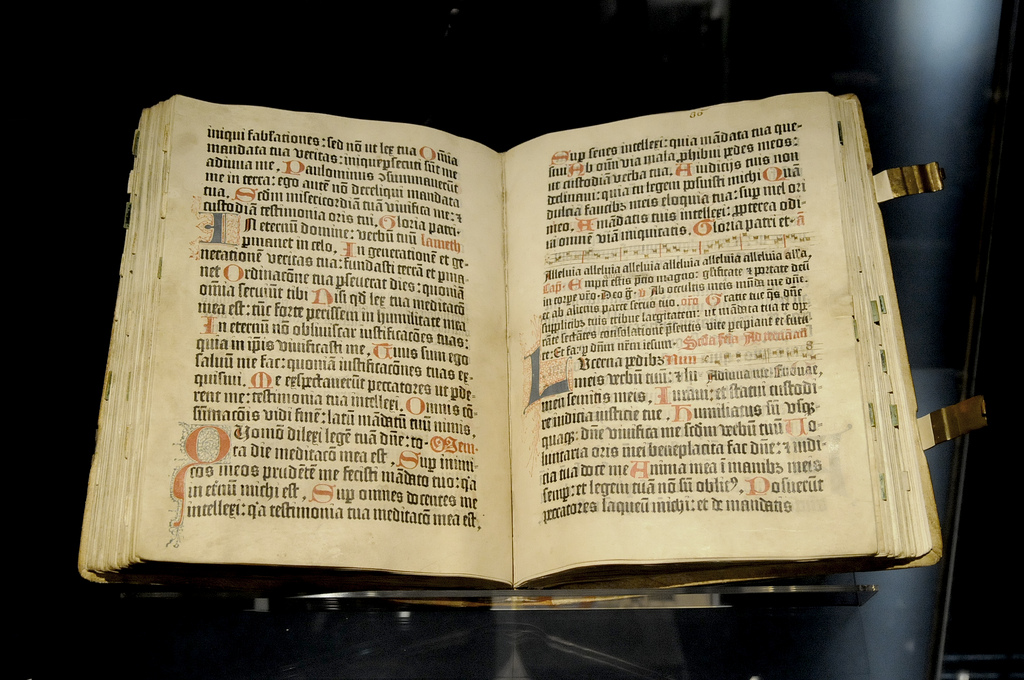 iniqui fabulationes: sed nō ut lex tua Omīa
mandata tua veritas: inique persecuti sūt me
adiuva me. Paulominus cōsummaverūt
me in terra: ego autē nō dereliqui mandata
tua. Scdm misericordiā tuā vivifica me: et
custodiā testimonia oris tui. Gloria patri
In eternū domine: verbū tuū lameth
permanet in celo. In generationē et ge-
nerationē veritas tua: fundasti terrā et pma-
net Ordinacōne tua pseverat dies: quoniā
omīa serviūt tibi Nisi qd lex tua meditacō
mea est: tūc forte perissem in humilitate mea
In eternū nō obliviscar iustificacōes tuas:
quia in ipsis vivificasti me. Tuus sum ego
salvum me fac: quoniā iustificacōnes tuas ex-
quisivi. Me expectaverūt peccatores ut pde-
rent me: testimonia tua intellexi. Omnis cō-
sūmacōnis vidi finē: latū mādatū tuū nimis.
Quomō dilexi legē tuā dn̄e: to- Mem
ta die meditacō mea est. Sup inimi-
cos meos prudētē me fecisti mādato tuo: q'a
in eternū michi est. Sup omnes docentes me
intellexi: q'a testimonia tua meditacō mea est.
Sup senes intellexi: quia mādata tua que-
sivi Ab omī via mala phibui pedes meos:
ut custodiā verba tua. A iudicijs tuis non
declinavi: quia tu legem posuisti michi Quā
dulcia faucibus meis eloquia tua: sup mel ori
meo. A mandatis tuis intellexi: ppterea odi-
vi omnē viā iniquitatis. Gloria patri et
Alleluia alleluia alleluia alleluia alleluia alleluia alla,
Cap. Empti estis pcio magno: glificate et portate deū
in corpe vro. Deo g. Ab occultis meis mūda me dn̄e
et ab alienis parce servo tuo.
supplicibus tuis tribue largitatem: ut mādata tua te opi-
tulante sectātes consolationē psentis vite percipiant et futu-
re: Et fa
Lucerna pedibus Nun
meis verbū tuū: et lu- Adiuva me Evovae,
men semitis meis. Iuravi: et statui custodi-
re iudicia iusticie tue. Humiliatus sū usq
quaq: dn̄e vivifica me scdm verbū tuū Vo-
luntaria oris mei beneplacita fac dn̄e: et iudi-
cia tua doce me Anima mea ī manibus meis
semp: et legem tuā nō sū oblit9. Posuerūt
peccatores laqueū michi: et de mandatis